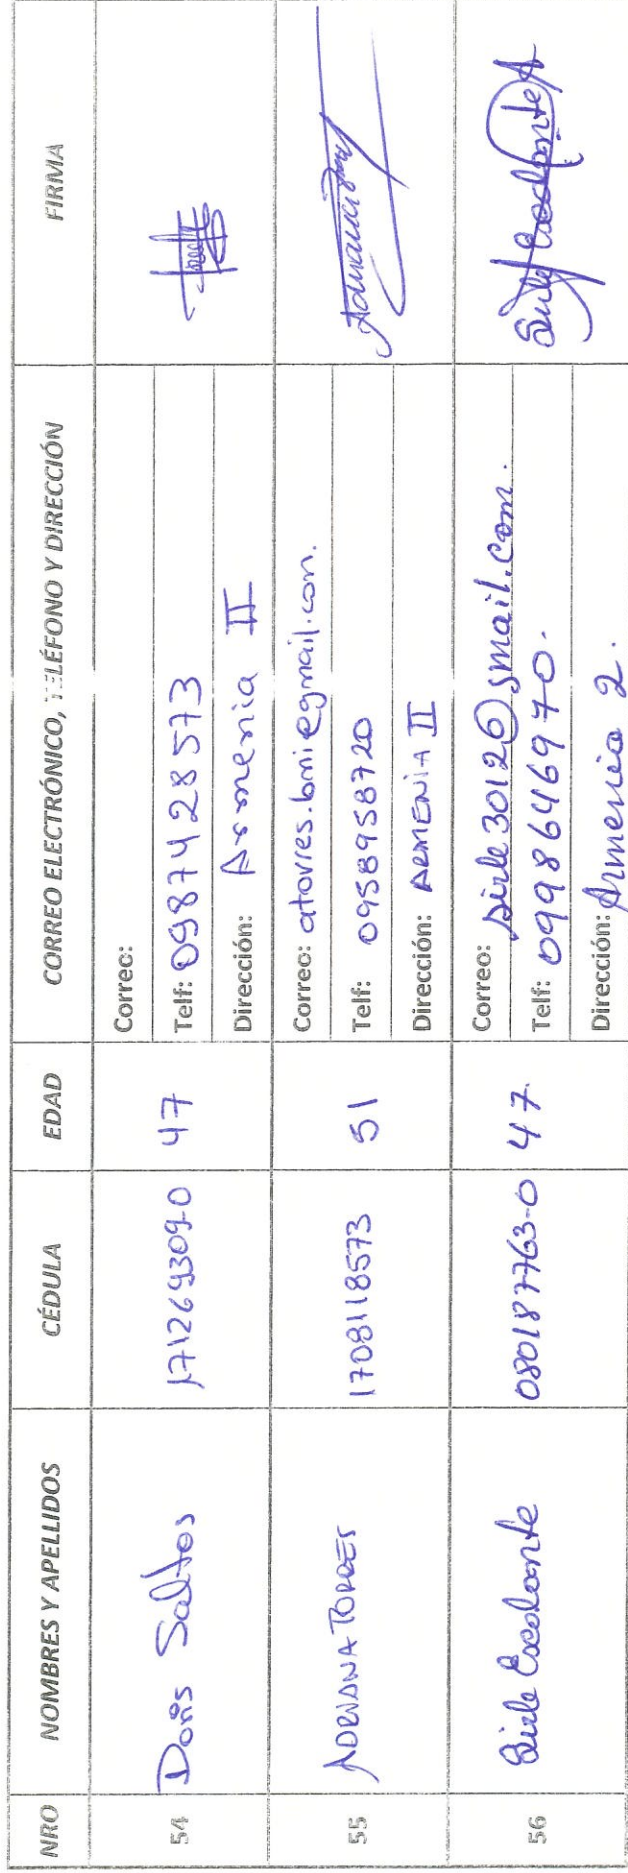 NRO NOMBRES Y APELLIDOS CÉDULA EDAD CORREO ELECTRÓNICO, TELÉFONO Y DIRECCIÓN FIRMA
54 Doris Saltos 171269309-0 47
Correo:
Telf: 0987428573
Dirección: Armenia II
55 ADRIANA TORRES 1708118573 51
Correo: atorres.bmi@gmail.com.
Telf: 0958958720
Dirección: ARMENIA II
56 Sirle Escalante 080187763-0 47.
Correo: sirle3012@gmail.com.
Telf: 0998646970.
Dirección: Armenia 2.
Sirle Escalante A